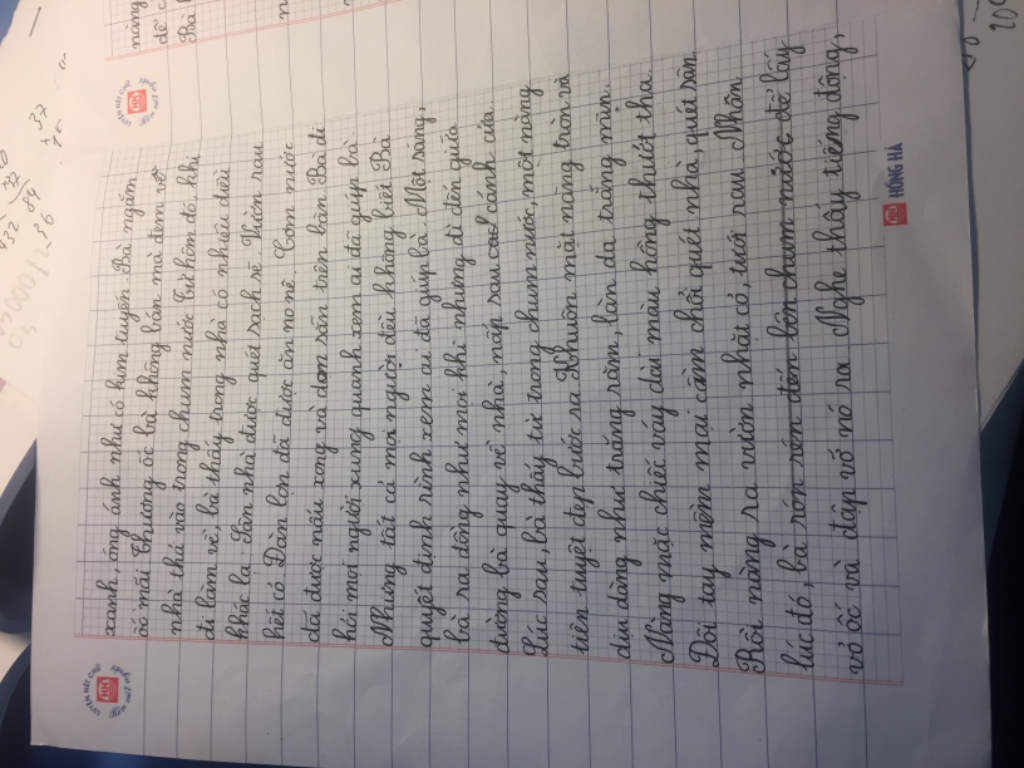 xanh, óng ánh như có kim tuyến. Bà ngắm
ốc mãi. Thương ốc bà không bán mà đem về
nhà thả vào trong chum nước. Từ hôm đó, khi
đi làm về, bà thấy trong nhà có nhiều điều
khác lạ. Sân nhà được quét sạch sẽ. Vườn rau
hết cỏ. Đàn lợn đã được ăn no nê. Cơm nước
đã được nấu xong và dọn sẵn trên bàn. Bà đi
hỏi mọi người xung quanh xem ai đã giúp bà.
Nhưng tất cả mọi người đều không biết. Bà
quyết định rình xem ai đã giúp bà. Một sáng,
bà ra đồng như mọi khi nhưng đi đến giữa
đường bà quay về nhà, nấp sau cánh cửa.
Lúc sau, bà thấy từ trong chum nước, một nàng
tiên tuyệt đẹp bước ra. Khuôn mặt nàng tròn và
dịu dàng như trăng rằm, làn da trắng mịn.
Nàng mặc chiếc váy dài màu hồng thướt tha.
Đôi tay mềm mại cầm chổi quét nhà, quét sân.
Rồi nàng ra vườn nhặt cỏ, tưới rau. Nhân
lúc đó, bà rón rén đến bên chum nước để lấy
vỏ ốc và đập vỡ nó ra. Nghe thấy tiếng động,
HỒNG HÀ
LUYỆN NÉT CHỮ
nàng
Bà